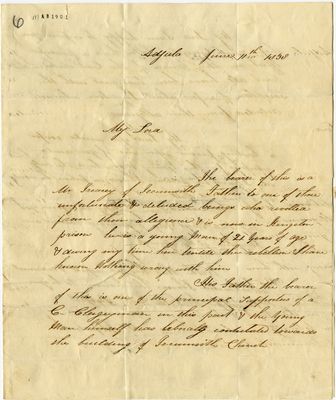 6
MAR 1901
Adjala June 11th 1838
My Lord
The bearer of this is a
Mr of Tecumseth Father to one of those
unfortunate & deluded beings who
from their allegiance & is now in Kingston
prison he is a young Man of 21 Years of age
& during my time here until the rebellion I have
known nothing wrong with him
His Father the bearer
of this is one of the principal Supporters of a
C Clergyman in this part & the Young
Man himself has liberally contributed towards
the building of Tecumseth Church